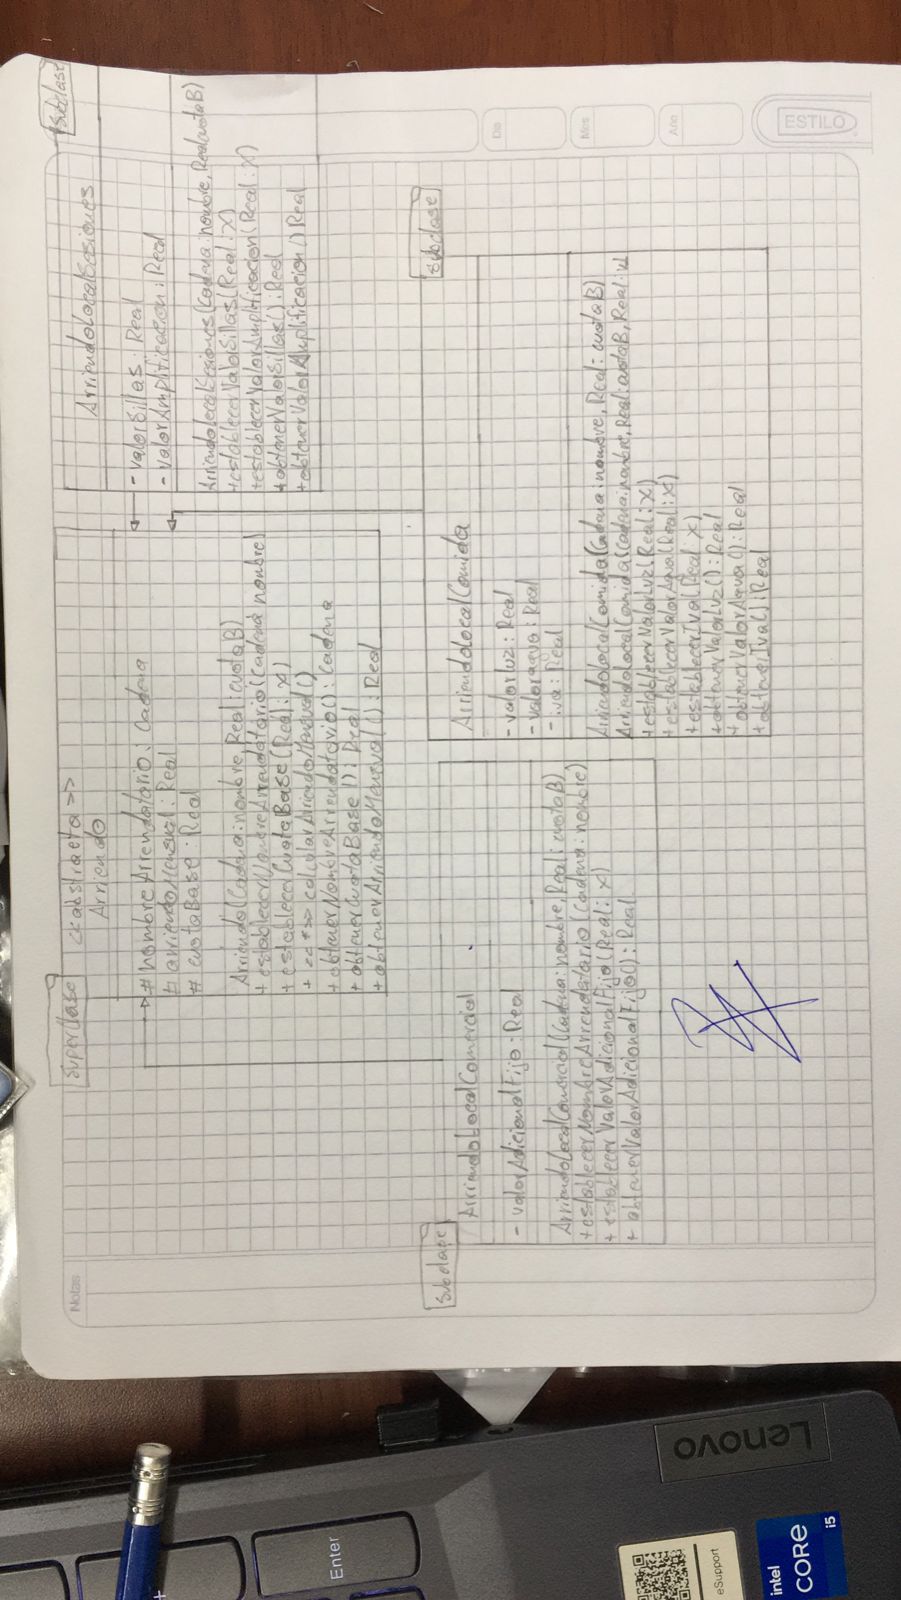 Notas
Superclase
<<abstracta>>
Arriendo
# nombreArrendatario: Cadena
# arriendoMensual: Real
# cuotaBase: Real
Arriendo(Cadena:nombre, Real:cuotaB)
+ establecerNombreArrendatario(Cadena nombre)
+ establecerCuotaBase(Real: x)
+ <<*>> calcularArriendoMensual()
+ obtenerNombreArrendatario(): Cadena
+ obtenerCuotaBase(): Real
+ obtenerArriendoMensual(): Real
Subclase
ArriendoLocalSesiones
- valorSillas: Real
- valorAmplificacion: Real
ArriendoLocalSesiones(Cadena:nombre, Real:cuotaB)
+ establecerValorSillas(Real: x)
+ establecerValorAmplificacion(Real: x)
+ obtenerValorSillas(): Real
+ obtenerValorAmplificacion() Real
Subclase
ArriendoLocalComercial
- valorAdicionalFijo: Real
ArriendoLocalComercial(Cadena:nombre, Real:cuotaB)
+ establecerNombreArrendatario(Cadena: nombre)
+ establecerValorAdicionalFijo(Real: x)
+ obtenerValorAdicionalFijo(): Real
Subclase
ArriendoLocalComida
- valorluz: Real
- valoragua: Real
- iva: Real
ArriendoLocalComida(Cadena:nombre, Real:cuotaB)
ArriendoLocalComida(Cadena:nombre, Real:cuotaB, Real:
+ establecerValorLuz(Real: x)
+ establecerValorAgua(Real: x)
+ establecerIva(Real x)
+ obtenerValorLuz(): Real
+ obtenerValorAgua(): Real
+ obtenerIva(): Real
Día
Mes
Año
ESTILO
Lenovo
Enter
eSupport
intel
CORE
i5